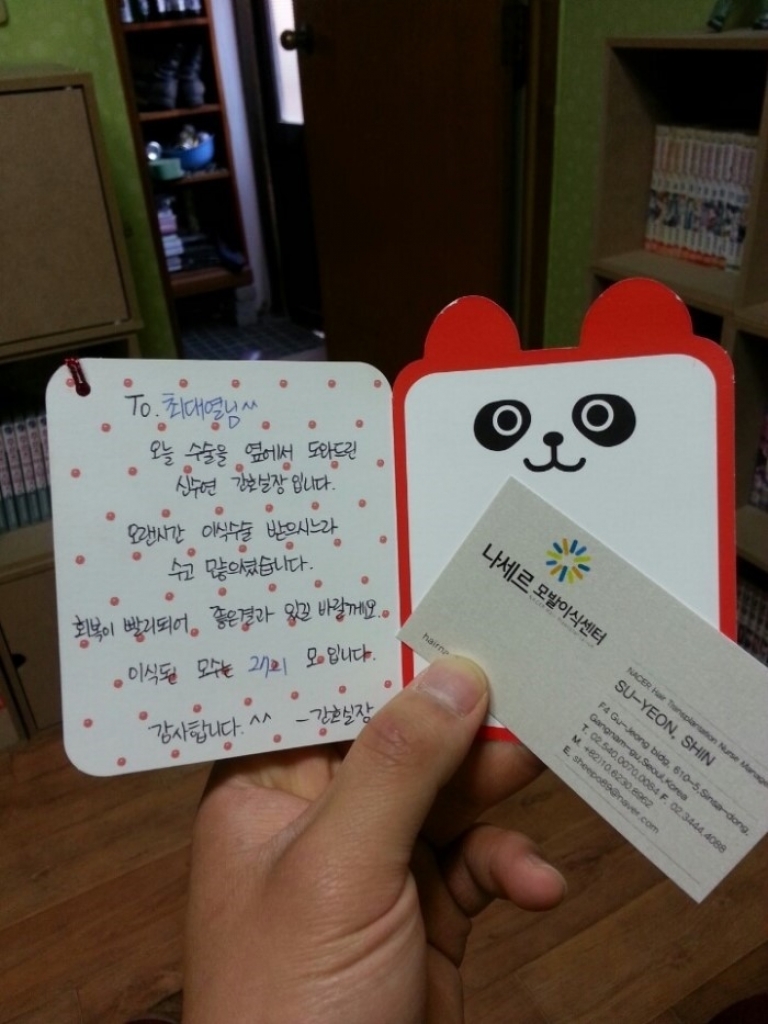 To. 최대열님^^
오늘 수술을 옆에서 도와드린
신수연 간호실장 입니다.
오랜시간 이식수술 받으시느라
수고 많으셨습니다.
회복이 빨리되어 좋은결과 있길 바랄께요.
이식된 모수는 모 입니다.
감사합니다. ^^ -간호실장
나세르 모발이식센터
NACER Hair Transplantation Nurse Manage
SU-YEON, SHIN
F4 Gu-Jeong bldg, 610-5, Sinsa-dong,
Gangnam-gu, Seoul, Korea
T. 02.540.0070,0084 F. 02.3444.4088
M. +82)10.6230.8962
E. sheepc89@naver.com